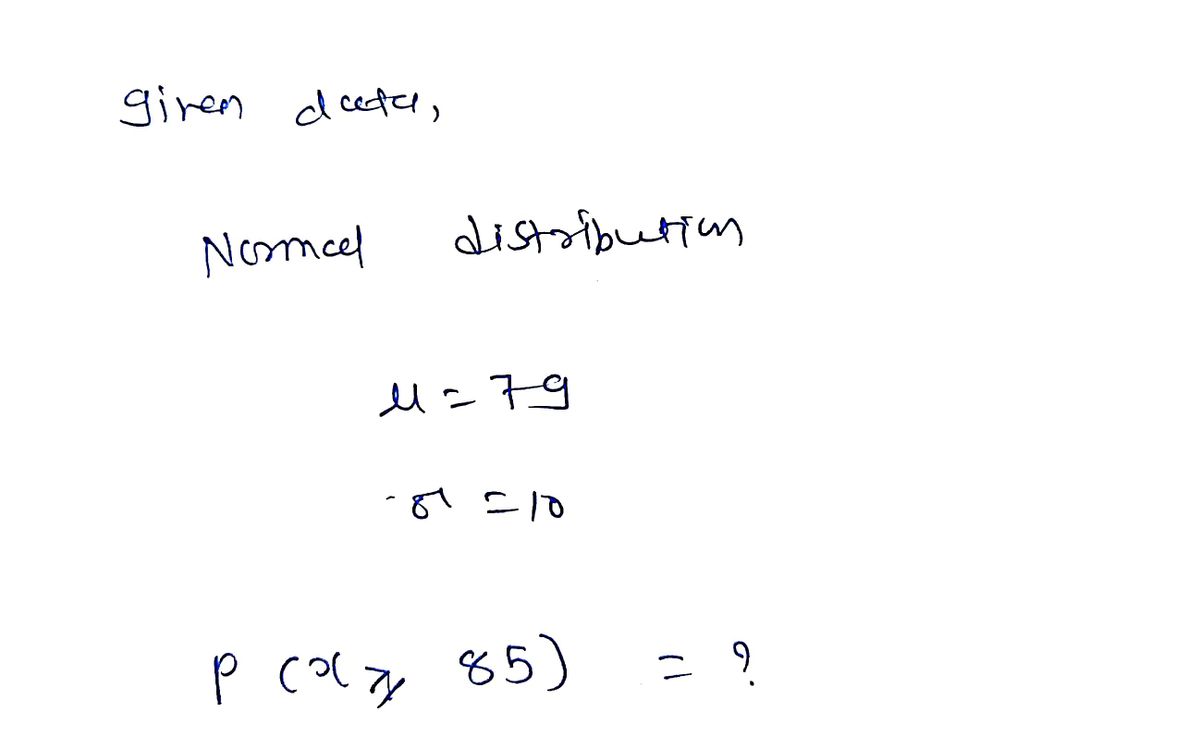 given data,
Normal distribution
μ = 79
σ = 10
P (x ≥ 85) = ?